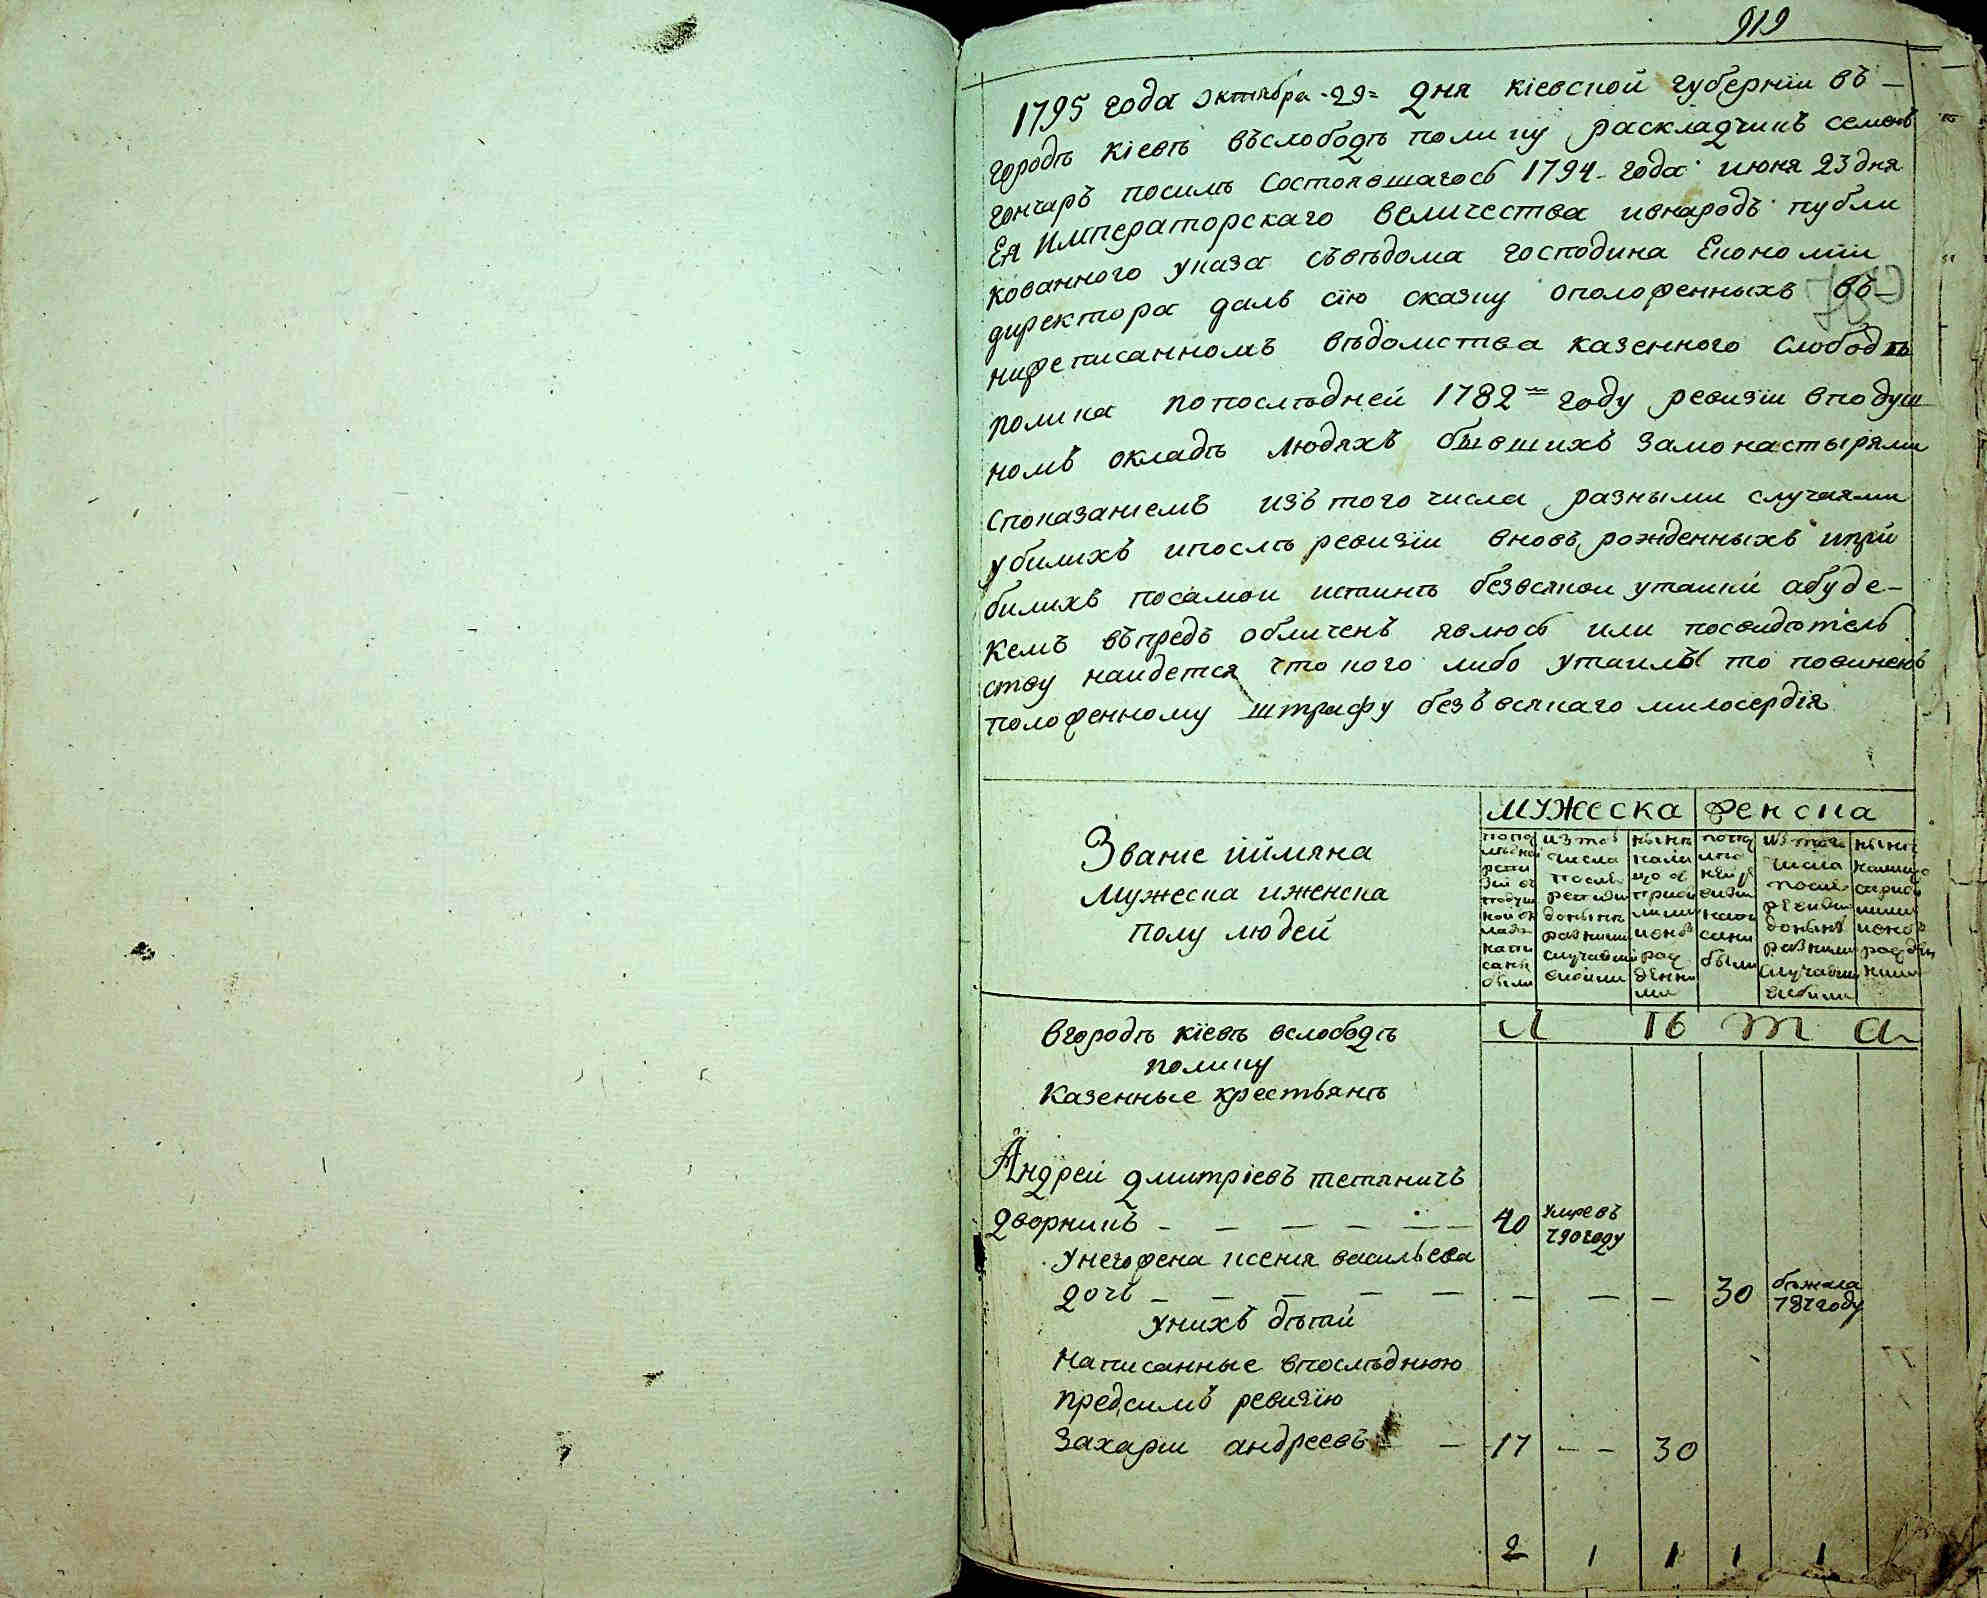 919
1795 года октября 29 = дня кіевской губерніи въ –
городѣ кіевѣ въслободѣ полину раскладчикъ семенъ
гончаръ посилѣ Состоявшагось 1794 года июня 23 дня
Ея Императорскаго величества ивнародъ публи
кованного указа съвѣдома господина Економіи
директора далъ сію сказку оположенныхъ въ –
нижеписанномъ вѣдомства казенного слободѣ
полика попослѣдней 1782 году ревизіи вподуш
номъ окладѣ людяхъ бывшихъ замонастырями
Споказаніемъ изъ того числа разными случаями
убилихъ ипослѣ ревизіи вновь рожденныхъ ипри
билихъ посамои истинѣ безвсякои утаики абуде –
кемъ въпредъ обличенъ явлюсь или посвидѣтель
ству наидется что кого либо утаилъ то повиненъ
положенному штрафу безъ всякаго милосердія
Званіе иймяна
мужеска иженска
полу людей
мужеска женска
попо слѣдней реви зіи въ подуш ной ок ладъ напи саны были
изтого числа послѣ ревизіи донынѣ разними случаями
нынѣ нали
изтого числа послѣ ревизіи донынѣ разними случаями
лѣта
Вгородѣ кіевѣ вслободѣ
полику
Казенные крестьянѣ
Андреи дмитріевъ тетяничъ
дворникъ – – – – – – 40 умревъ 790 году
унегожена ксенія васильева
дочь – – – – – – – – 30 бѣжала 787 году
унихъ дѣтей
Написанные впослѣднюю
предсимъ ревизію
Захарии андреевъ – – 17 – – 30
2 1 1 1 1